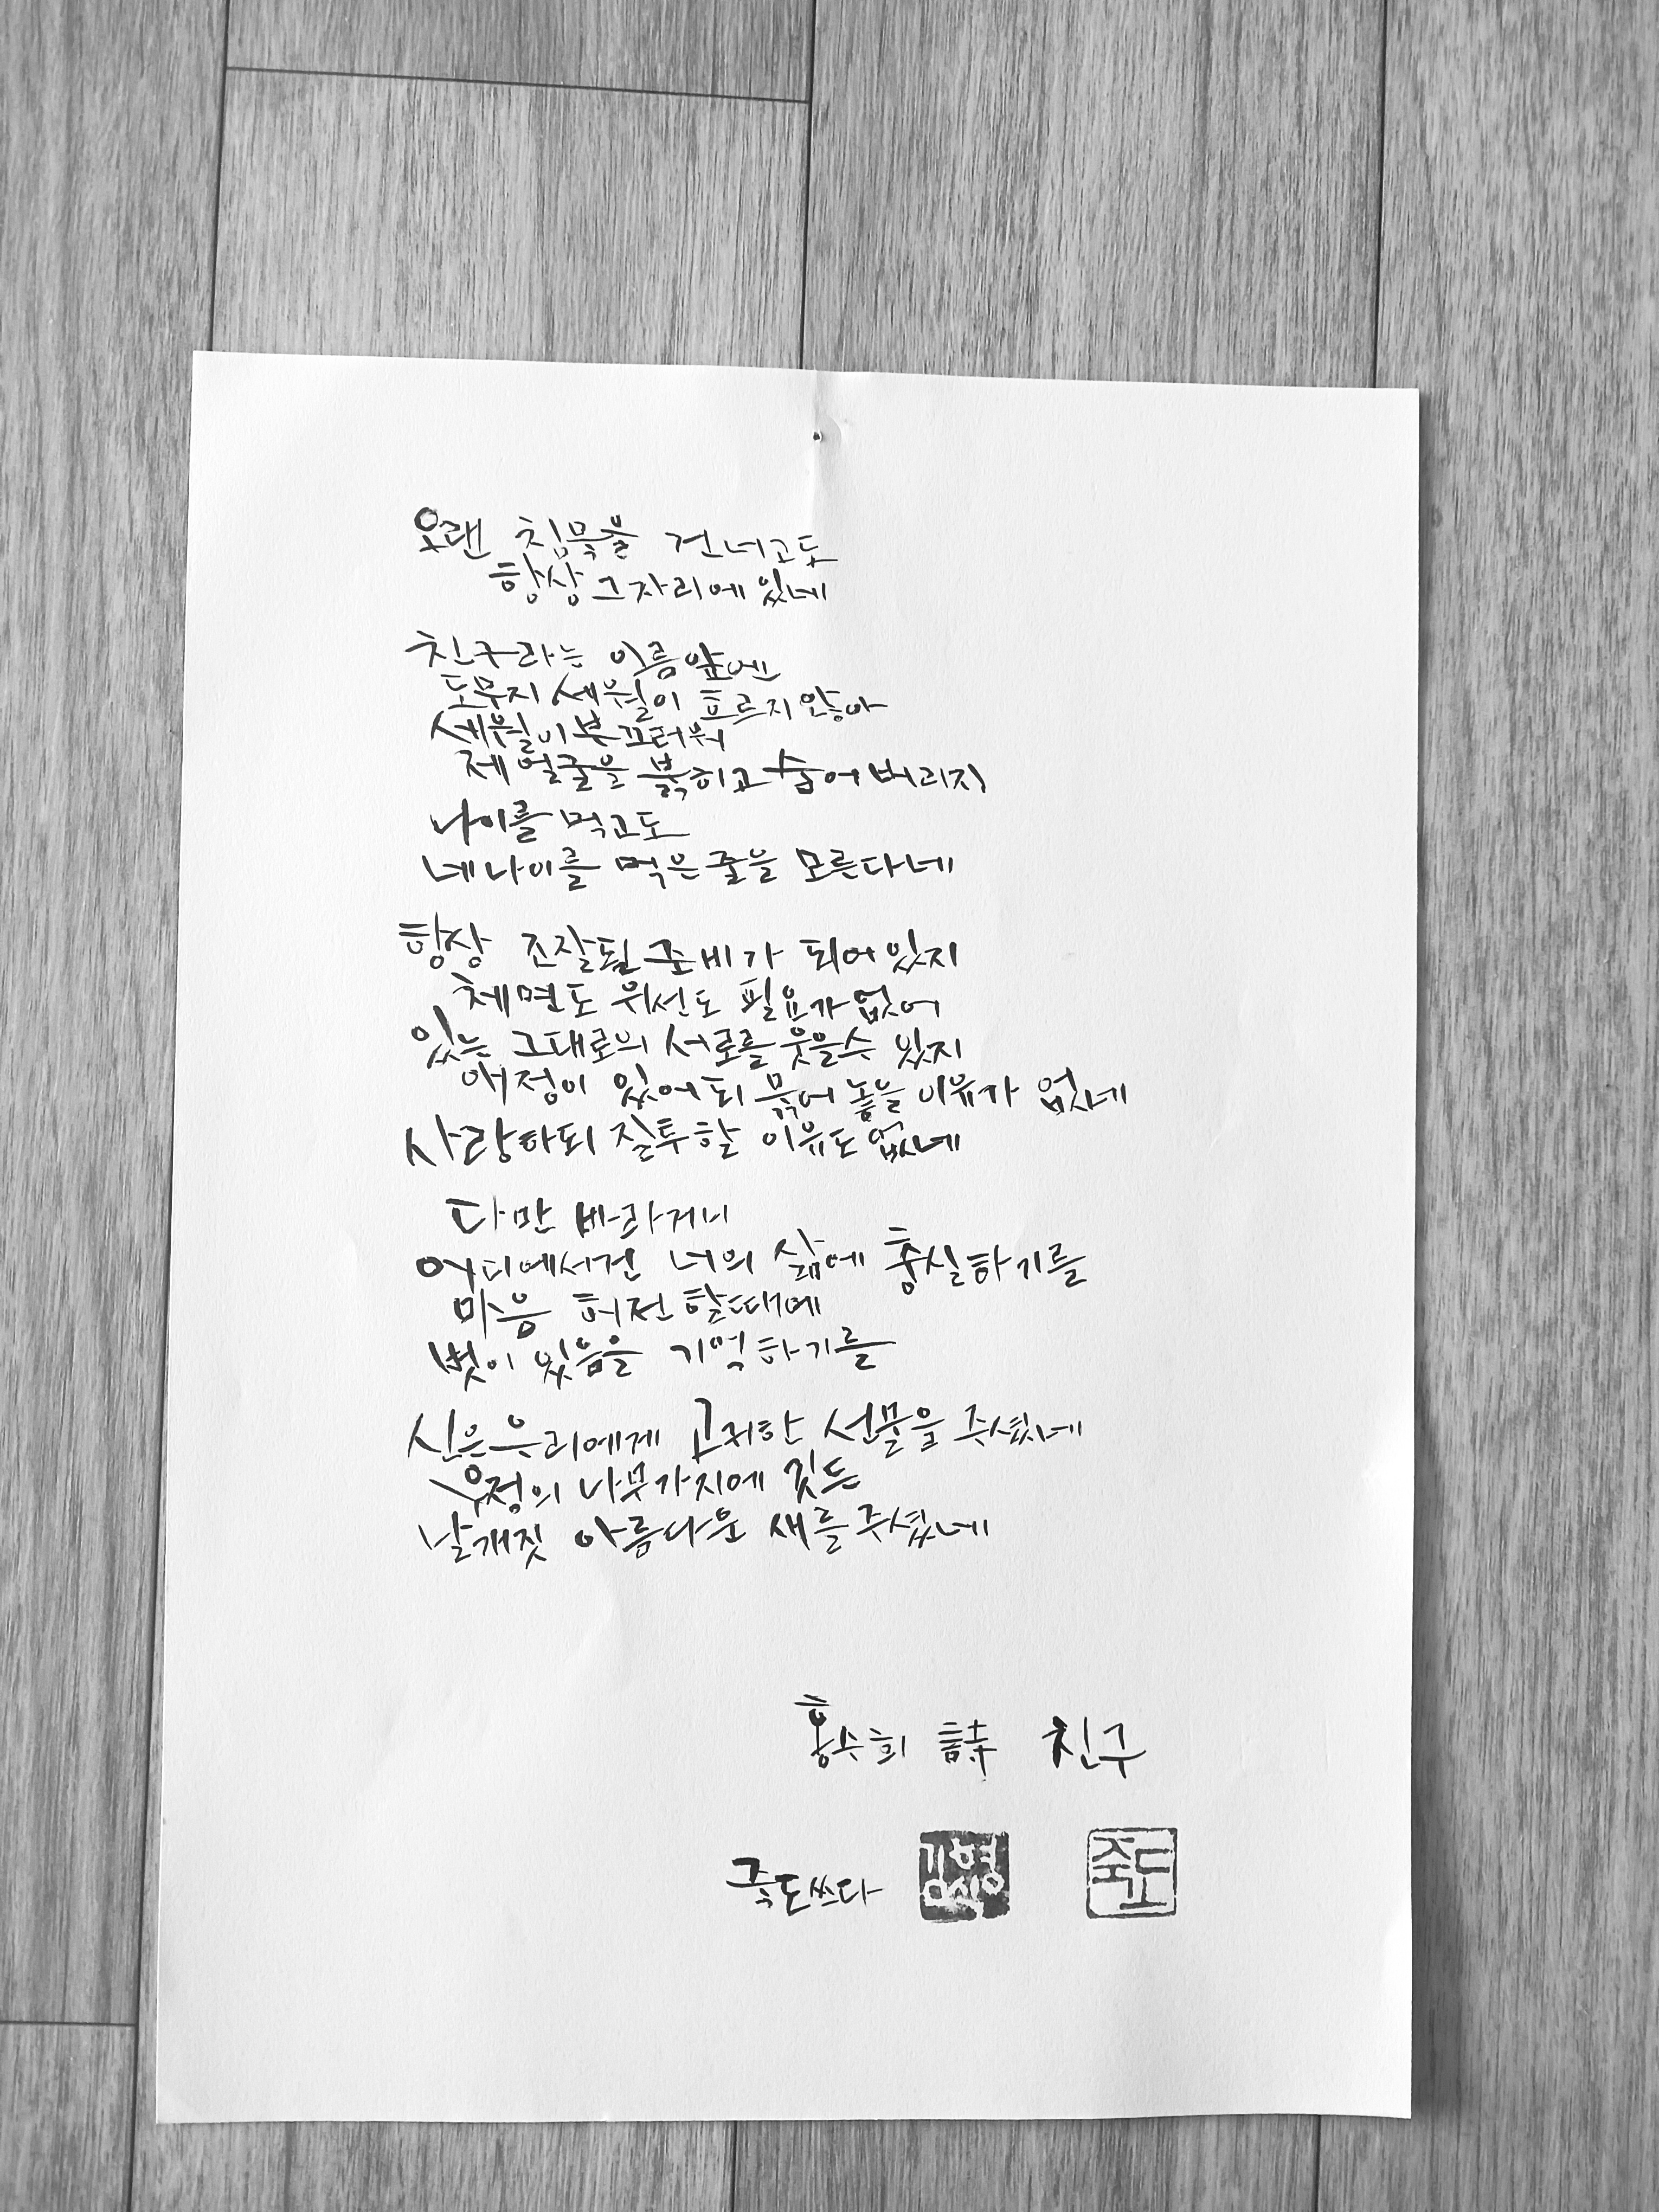 오랜 침묵을 건너고도
항상 그 자리에 있네
친구라는 이름 앞엔
도무지 세월이 흐르지 않아
세월이 부끄러워
제 얼굴을 붉히고 숨어 버리지
나이를 먹고도
네 나이를 먹은 줄을 모른다네
항상 조잘될 준비가 되어 있지
체면도 위선도 필요가 없어
있는 그대로의 서로를 웃을 수 있지
애정이 있어되 묶어 놓을 이유가 없네
사랑하되 질투할 이유도 없네
다만 바라거니
어디에서건 너의 삶에 충실하기를
마음 허전 할 때에
벗이 있음을 기억하기를
신은 우리에게 고귀한 선물을 주셨네
우정의 나무가지에 깃든
날개짓 아름다운 새를 주셨네
홍수희 詩 친구
죽도 쓰다 김형싱 죽도